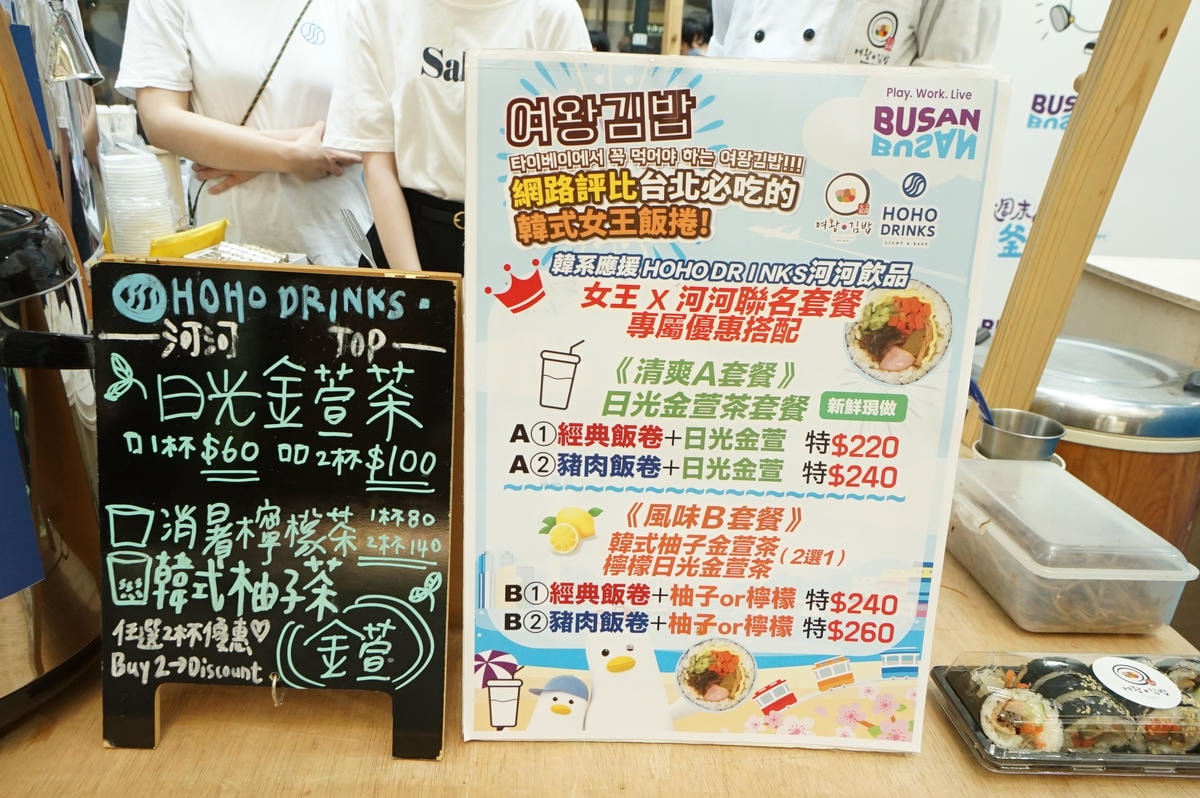 HOHO DRINKS
河河 TOP
日光金萱茶
1杯$60 2杯$100
消暑檸檬茶 1杯80
2杯140
韓式柚子茶
任選2杯優惠♡
Buy 2→Discount
金萱
Sal
여왕김밥
타이베이에서 꼭 먹어야 하는 여왕김밥!!!
網路評比台北必吃的
韓式女王飯捲!
Play. Work. Live
BUSAN
BUSAN
여왕김밥
HOHO
DRINKS
LIGHT & EASY
韓系應援HOHO DRINKS河河飲品
女王 X 河河聯名套餐
專屬優惠搭配
《清爽A套餐》
日光金萱茶套餐 新鮮現做
A①經典飯卷+日光金萱 特$220
A②豬肉飯卷+日光金萱 特$240
《風味B套餐》
韓式柚子金萱茶
檸檬日光金萱茶 (2選1)
B①經典飯卷+柚子or檸檬 特$240
B②豬肉飯卷+柚子or檸檬 特$260
BUS
週末
釜
여왕김밥